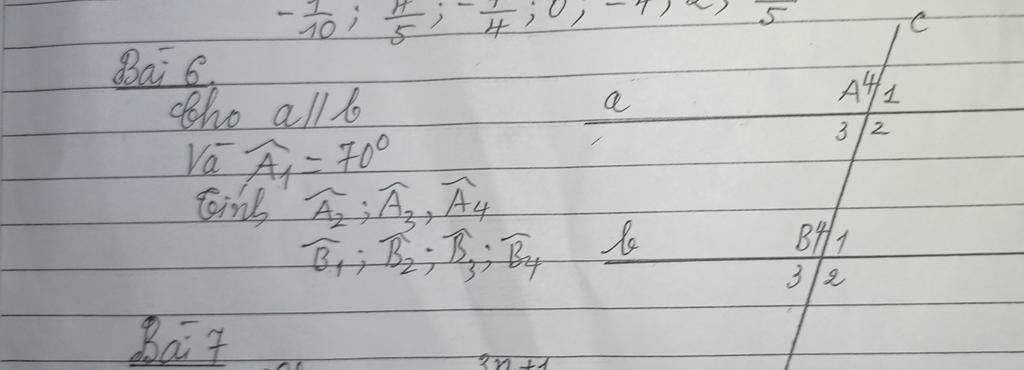 -1/10; 4/5; -; 0; -4; 2; /5
Bài 6.
Cho a//b
Và Â₁ = 70⁰
Tính Â₂; Â₃, Â₄
B̂₁; B̂₂; B̂₃; B̂₄
c
a
A 4 1
3 2
b
B 4 1
3 2
Bài 7
3n+1